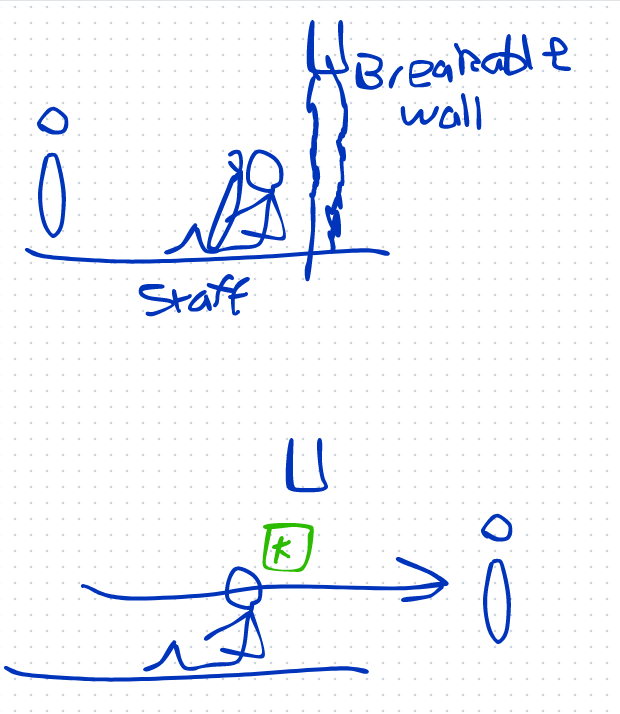 Breakable
wall
Staff
K